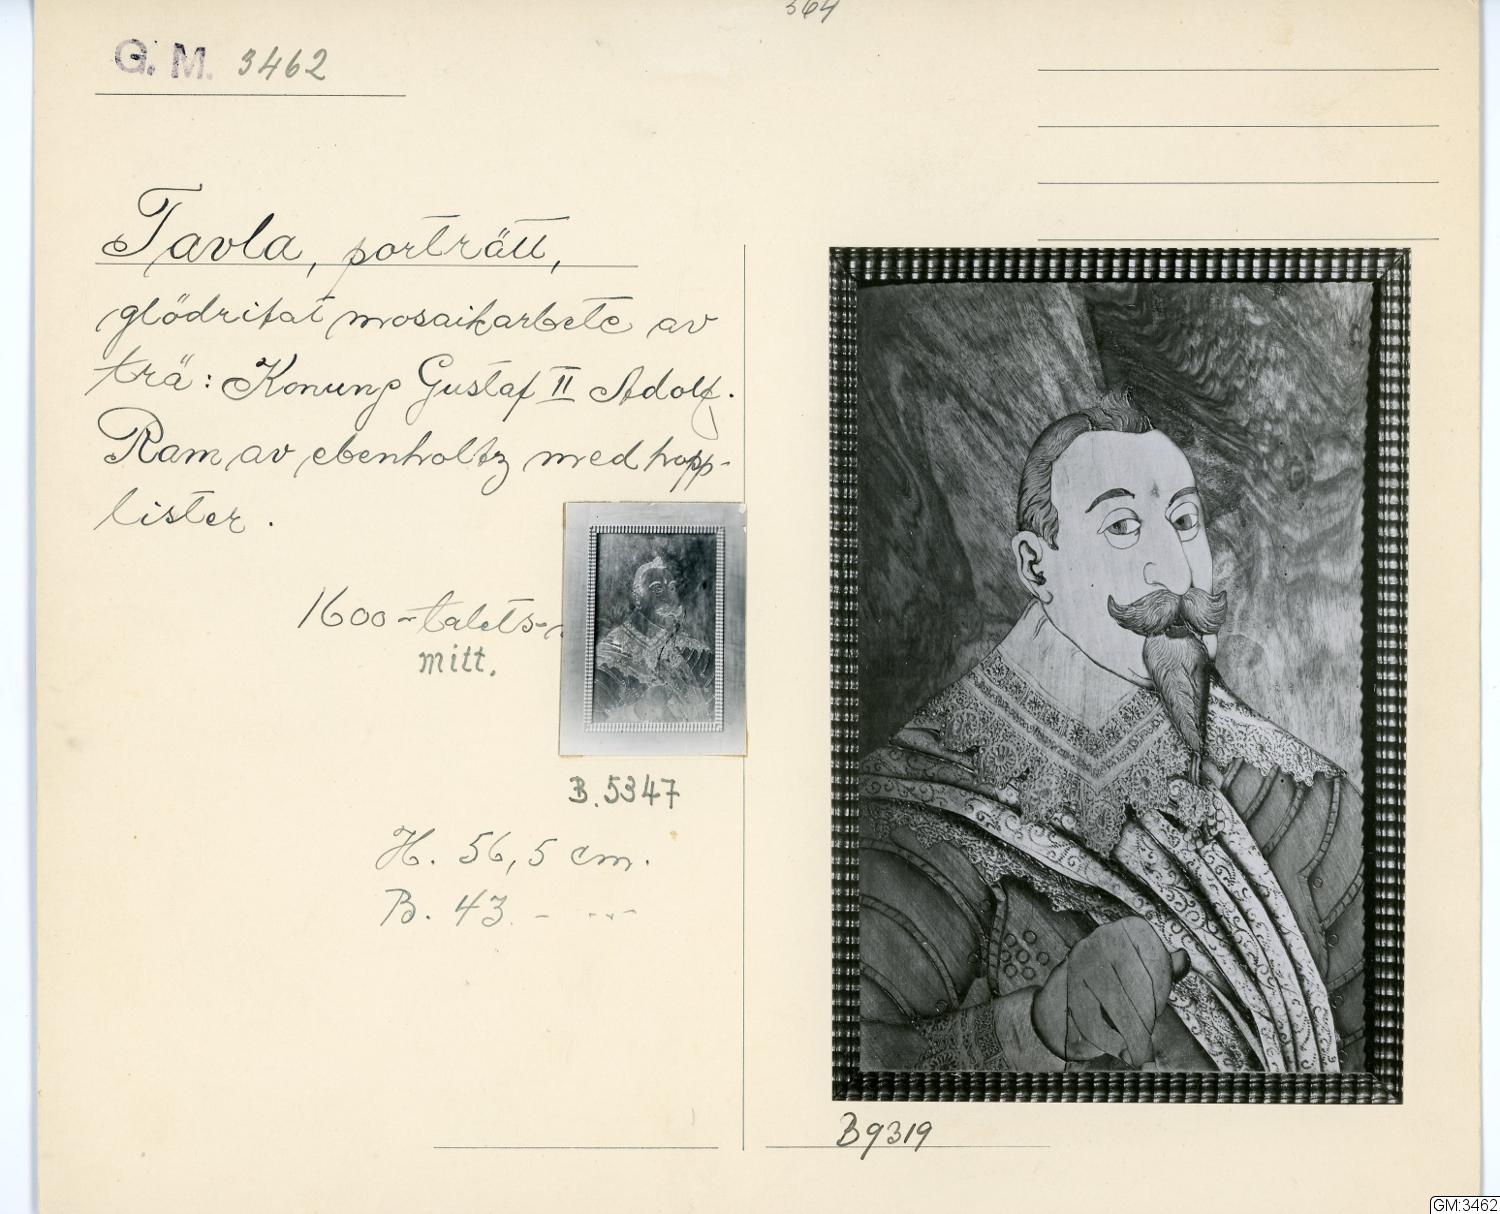 364
G. M. 3462
Tavla, porträtt,
glödritat mosaikarbete av
trä: Konung Gustaf II Adolf.
Ram av ebenholtz med hopp-
lister.
1600-talets
mitt.
B. 5347
H. 56,5 cm.
B. 43 - -"-
B9319
GM:3462